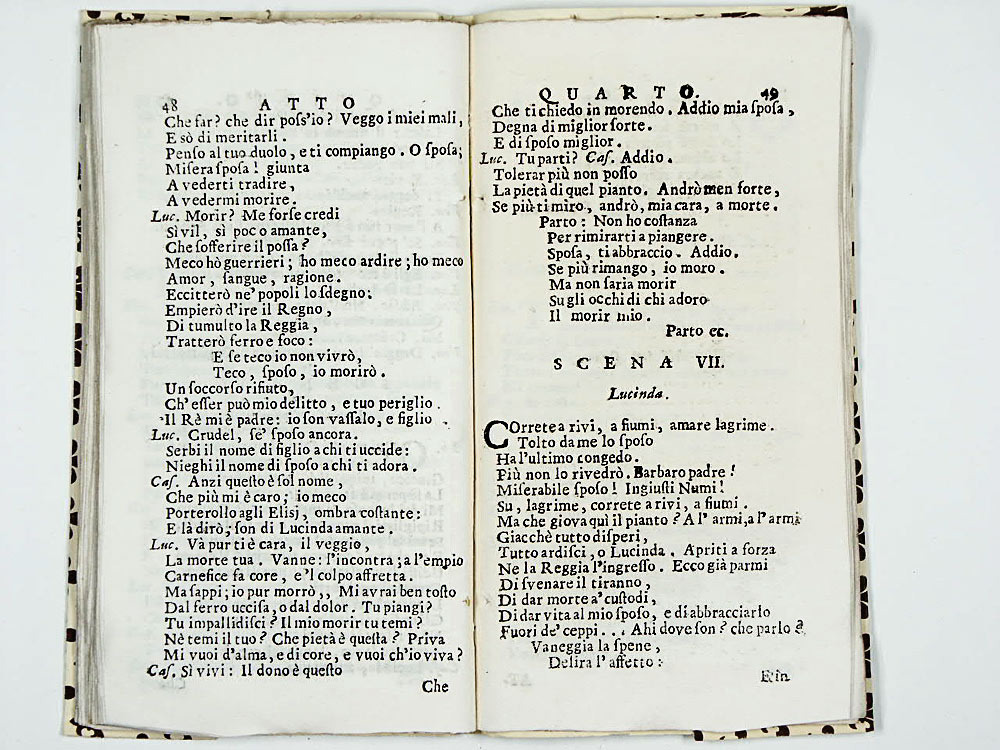 48 ATTO
Che far? che dir poſs'io? Veggo i miei mali,
E sò di meritarli.
Penſo al tuo duolo, e ti compiango. O ſpoſa;
Miſera ſpoſa! giunta
A vederti tradire,
A vedermi morire.
Luc. Morir? Me forſe credi
Sì vil, sì poco amante,
Che ſofferire il poſſa?
Meco hò guerrieri; ho meco ardire; ho meco
Amor, ſangue, ragione.
Ecciterò ne' popoli lo ſdegno:
Empierò d'ire il Regno,
Di tumulto la Reggia,
Tratterò ferro e foco:
E ſe teco io non vivrò,
Teco, ſpoſo, io morirò.
Un ſoccorſo rifiuto,
Ch' eſſer può mio delitto, e tuo periglio.
Il Rè mi è padre: io ſon vaſſalo, e figlio.
Luc. Crudel, ſe' ſpoſo ancora.
Serbi il nome di figlio a chi ti uccide:
Nieghi il nome di ſpoſo a chi ti adora.
Caſ. Anzi queſto è ſol nome,
Che più mi è caro; io meco
Porterollo agli Elisj, ombra coſtante:
E là dirò; ſon di Lucinda amante.
Luc. Và pur ti è cara, il veggio,
La morte tua. Vanne: l'incontra; a l'empio
Carnefice fa core, e 'l colpo affretta.
Ma ſappi; io pur morrò,, Mi avrai ben toſto
Dal ferro ucciſa, o dal dolor. Tu piangi?
Tu impallidiſci? Il mio morir tu temi?
Nè temi il tuo? Che pietà è queſta? Priva
Mi vuoi d'alma, e di core, e vuoi ch'io viva?
Caſ. Sì vivi: Il dono è queſto
Che
QUARTO. 49
Che ti chiedo in morendo. Addio mia ſpoſa,
Degna di miglior ſorte.
E di ſpoſo miglior.
Luc. Tu parti? Caſ. Addio.
Tolerar più non poſſo
La pietà di quel pianto. Andrò men forte,
Se più ti miro, andrò, mia cara, a morte.
Parto: Non ho coſtanza
Per rimirarti a piangere.
Spoſa, ti abbraccio. Addio.
Se più rimango, io moro.
Ma non ſaria morir
Su gli occhi di chi adoro
Il morir mio.
Parto ec.
SCENA VII.
Lucinda.
COrrete a rivi, a fiumi, amare lagrime.
Tolto da me lo ſpoſo
Ha l'ultimo congedo.
Più non lo rivedrò. Barbaro padre!
Miſerabile ſpoſo! Ingiuſti Numi!
Su, lagrime, correte a rivi, a fiumi.
Ma che giova quì il pianto? A l' armi, a l' armi
Giacchè tutto diſperi,
Tutto ardiſci, o Lucinda. Apriti a forza
Ne la Reggia l'ingreſſo. Ecco già parmi
Di ſvenare il tiranno,
Di dar morte a' cuſtodi,
Di dar vita al mio ſpoſo, e di abbracciarlo
Fuori de' ceppi... Ahi dove ſon? che parlo?
Vaneggia la ſpene,
Delira l' affetto:
E in